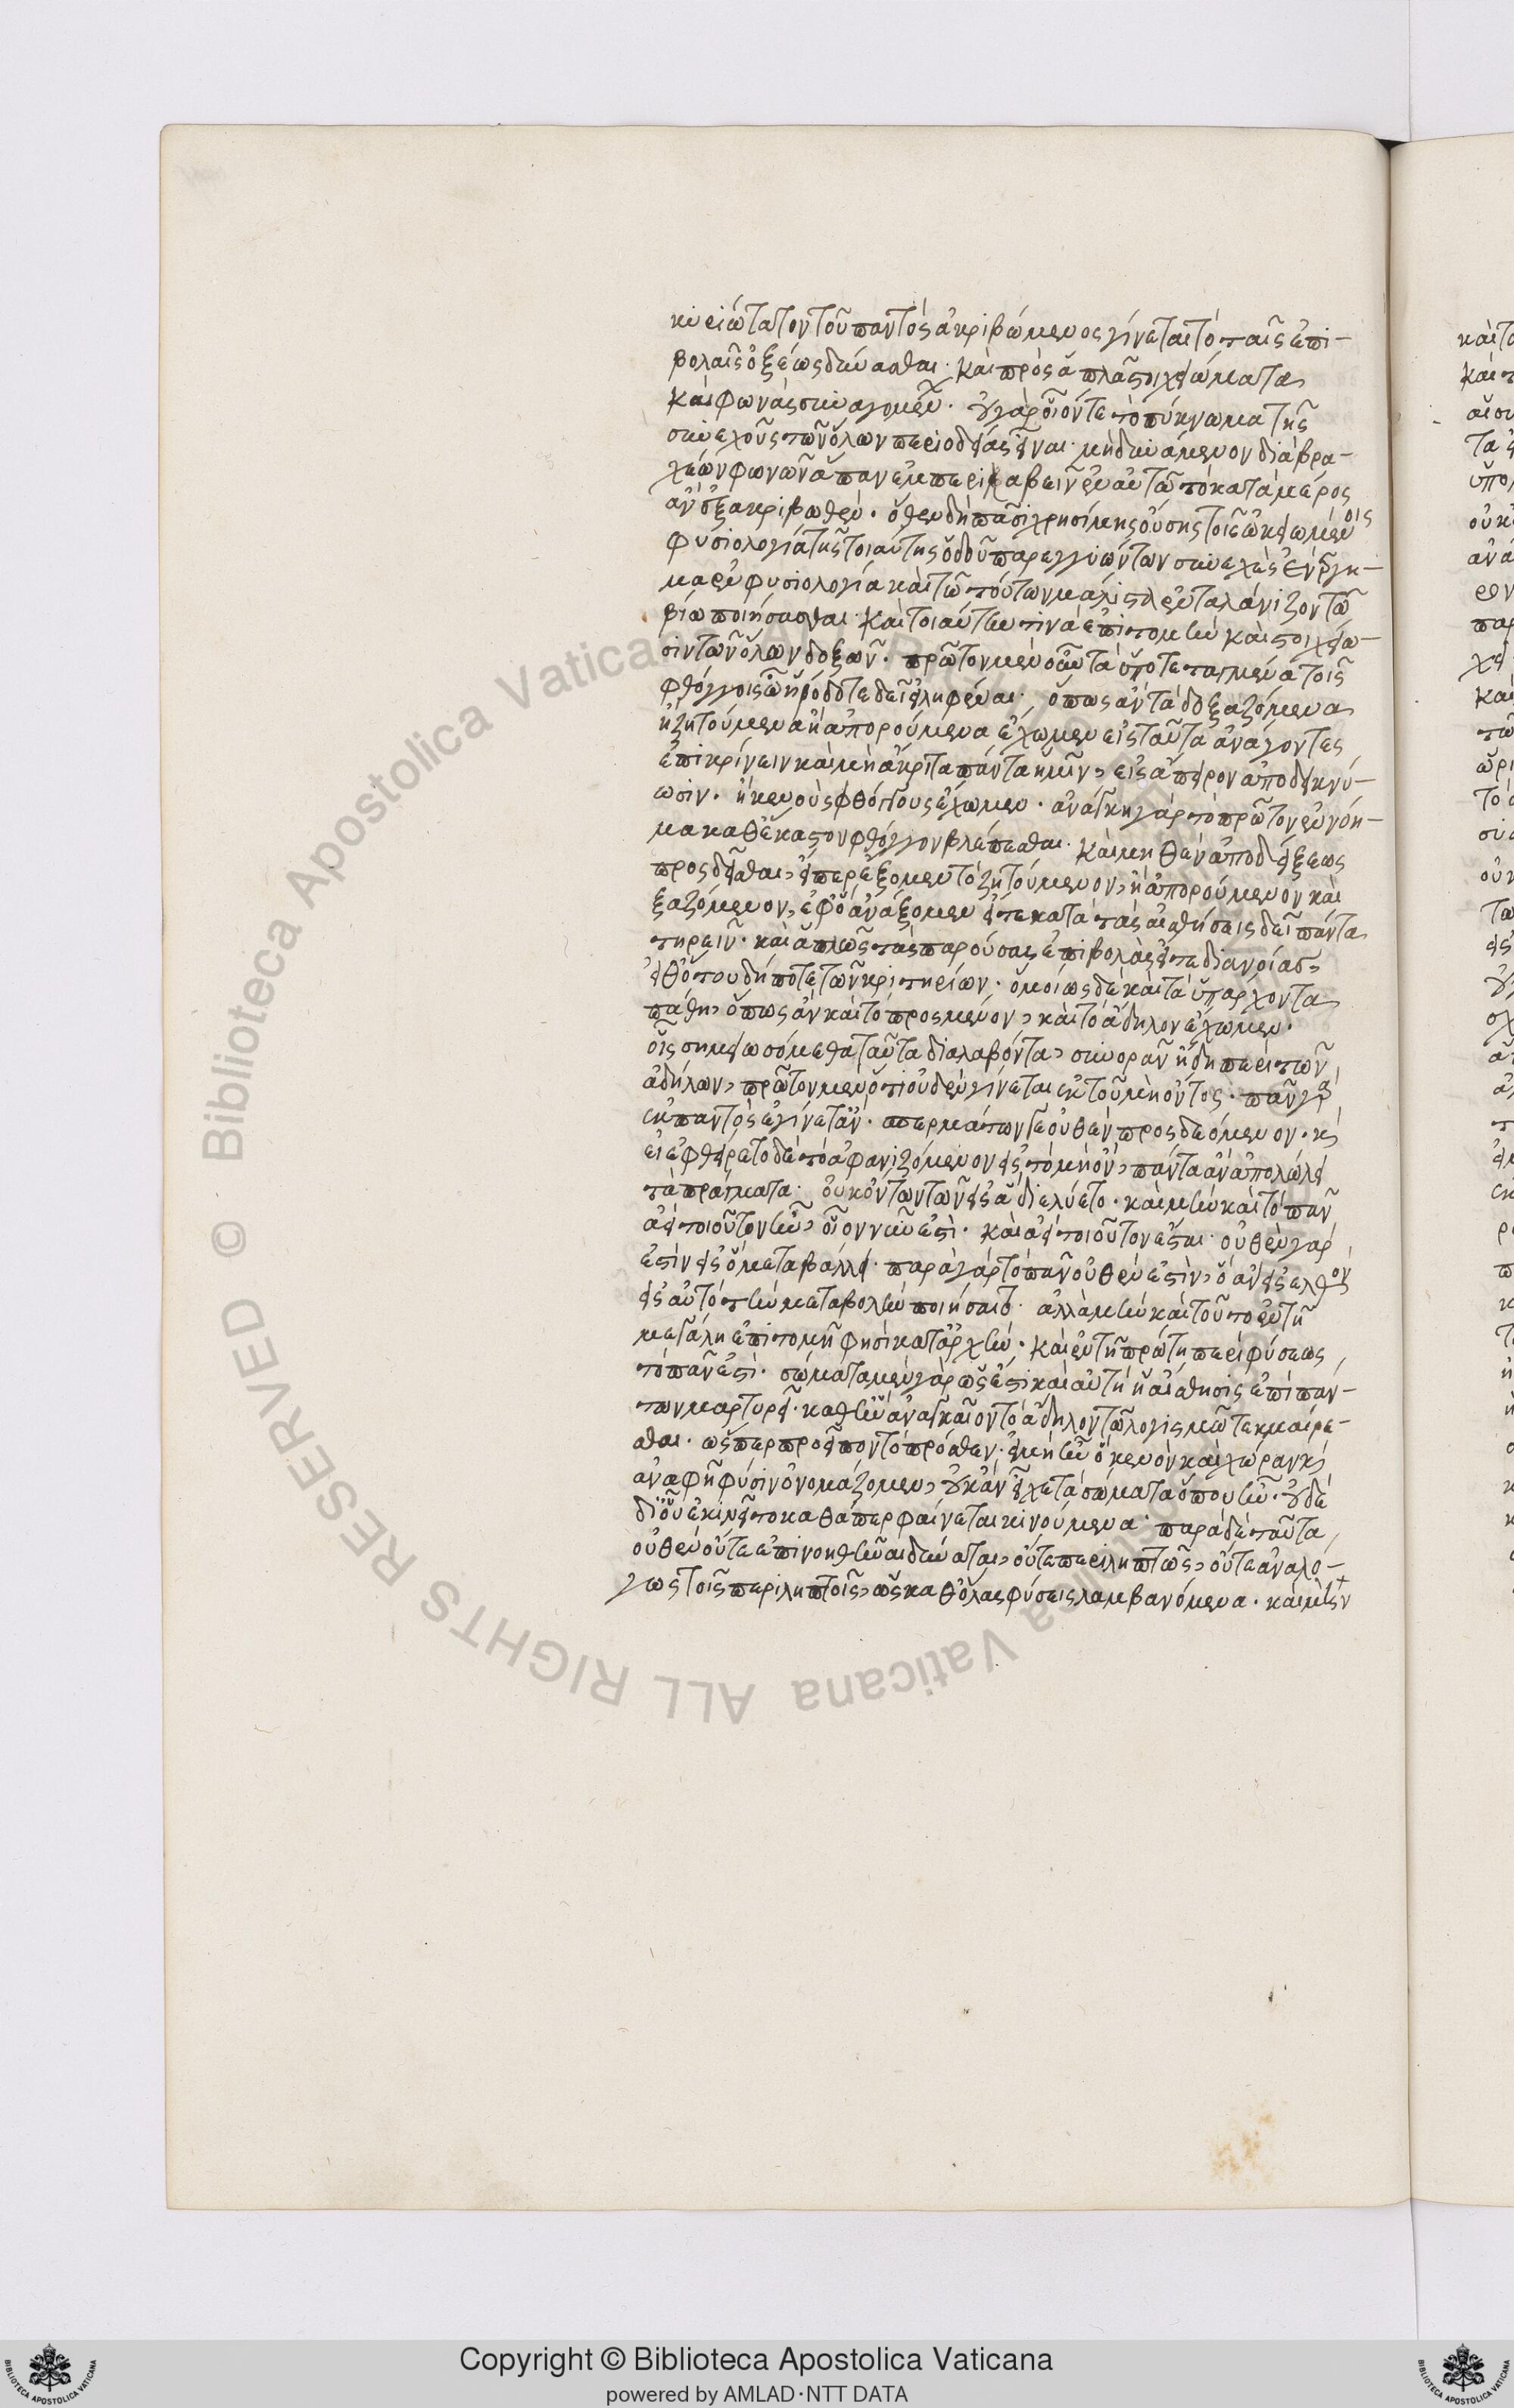 κυριώτατον τοῦ παντὸς ἀκριβώμενος γίνεται τὸ ταῖς ἐπι-
βολαῖς ὀξέως δύνασθαι. καὶ πρὸς ἁπλᾶ στοιχειώματα
καὶ φωνὰς συναγομένων. οὐ γὰρ οἷόν τε τὸ πύκνωμα τῆς
συνεχοῦς τῶν ὅλων περιοδείας εἶναι. μὴ δυνάμενον διὰ βρα-
χεῶν φωνῶν ἅπαν ἐμπεριλαβεῖν ἐν αὐτῶ τὸ κατὰ μέρος
ἂν ἐξακριβωθέν. ὅθεν δὴ πᾶσι χρησίμης οὔσης τοῖς ὠκειωμένοις
φυσιολογία τῆς τοιαύτης ὁδοῦ παρεγγυώντων συνεχὲς ἐνέργη-
μα ἐν φυσιολογία καὶ τῶ τούτων μάλιστα ἐνταλανίζον τῶ
βίω ποιήσασθαι. καὶ τοιαύτην τινὰ ἐπιτομὴν καὶ στοιχείω-
σιν τῶν ὅλων δοξῶν. πρῶτον μὲν οὖν τὰ ὑποτεταγμένα τοῖς
φθόγγοις ὦ ἡρόδοτε δεῖ εἰληφέναι. ὅπως ἂν τὰ δοξαζόμενα
ἢ ζητούμενα ἢ ἀπορούμενα ἔχωμεν εἰς ταῦτα ἀνάγοντες
ἐπικρίνειν καὶ μὴ ἄκριτα πάντα ἡμῖν, εἰς ἄπειρον ἀποδεικνύ-
ωσιν. ἢ κενοὺς φθόγγους ἔχωμεν. ἀνάγκη γὰρ τὸ πρῶτον ἐννόη-
μα καθ' ἕκαστον φθόγγον βλέπεσθαι. καὶ μηθὲν ἀποδείξεως
προσδεῖσθαι, εἴπερ ἕξομεν τὸ ζητούμενον, ἢ ἀπορούμενον καὶ
ξαζόμενον, ἐφ' ὃ ἀνάξομεν εἴτε κατὰ τὰς αἰσθήσεις δεῖ πάντα
τηρεῖν. καὶ ἁπλῶς τὰς παρούσας ἐπιβολὰς εἴτε διανοίας,
εἴθ' ὅτου δήποτε τῶν κριτηρίων. ὁμοίως δὲ καὶ τὰ ὑπάρχοντα
πάθη, ὅπως ἂν καὶ τὸ προσμένον, καὶ τὸ ἄδηλον ἔχωμεν.
οἷς σημειωσόμεθα ταῦτα διαλαβόντα, συνορᾶν ἤδη περὶ τῶν
ἀδήλων, πρῶτον μὲν ὅτι οὐδὲν γίνεται ἐκ τοῦ μὴ ὄντος. πᾶν γὰρ
ἐκ παντὸς ἐγίνετ' ἄν. σπερμάτων τε οὐθὲν προσδεόμενον. καὶ
εἰ ἐφθείρετο δὲ τὸ ἀφανιζόμενον εἰς τὸ μὴ ὄν, πάντα ἂν ἀπολώλει
τὰ πράγματα. οὐκ ὄντων τῶν εἰς ἃ διελύετο. καὶ μὴν καὶ τὸ πᾶν
ἀεὶ τοιοῦτον ἦν, οἷον νῦν ἐστὶ. καὶ ἀεὶ τοιοῦτον ἔσται. οὐθὲν γάρ
ἐστιν εἰς ὃ μεταβάλλει. παρὰ γὰρ τὸ πᾶν οὐθέν ἐστιν, ὃ ἂν εἰσελθὸν
εἰς αὐτὸ τὴν μεταβολὴν ποιήσαιτο. ἀλλὰ μὴν καὶ τοῦτο ἐν τῆ
μεγάλη ἐπιτομῆ φησὶ κατ' ἀρχὴν. καὶ ἐν τῆ πρώτη περὶ φύσεως,
τὸ πᾶν ἐστὶ. σώματα μὲν γὰρ ὡς ἔστι καὶ αὐτὴ ἡ αἴσθησις ἐπὶ πάν-
των μαρτυρεῖ. καθ' ἣν ἀναγκαῖον τὸ ἄδηλον τῶ λογισμῶ τεκμαίρε-
σθαι. ὥσπερ προεῖπον τὸ πρόσθεν. εἰ μὴ ἦν ὃ κενὸν καὶ χώραν καὶ
ἀναφῆ φύσιν ὀνομάζομεν, οὐκ ἂν εἶχε τὰ σώματα ὅπου ἦν. οὐδὲ
δι' οὗ ἐκινεῖτο καθάπερ φαίνεται κινούμενα. παρὰ δὲ ταῦτα,
οὐθὲν οὔτε ἐπινοηθῆναι δύναται, οὔτε περιληπτῶς, οὔτε ἀναλό-
γως τοῖς περιληπτοῖς, ὡς καθ' ὅλας φύσεις λαμβανόμενα. καὶ μὴ
Copyright © Biblioteca Apostolica Vaticana
powered by AMLAD·NTT DATA